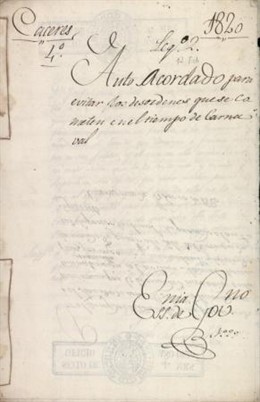 Caceres,
4.º
1820
Leg.º 2.
Auto Acordado para
evitar los desordenes que se co
meten en el tiempo de Carna
val